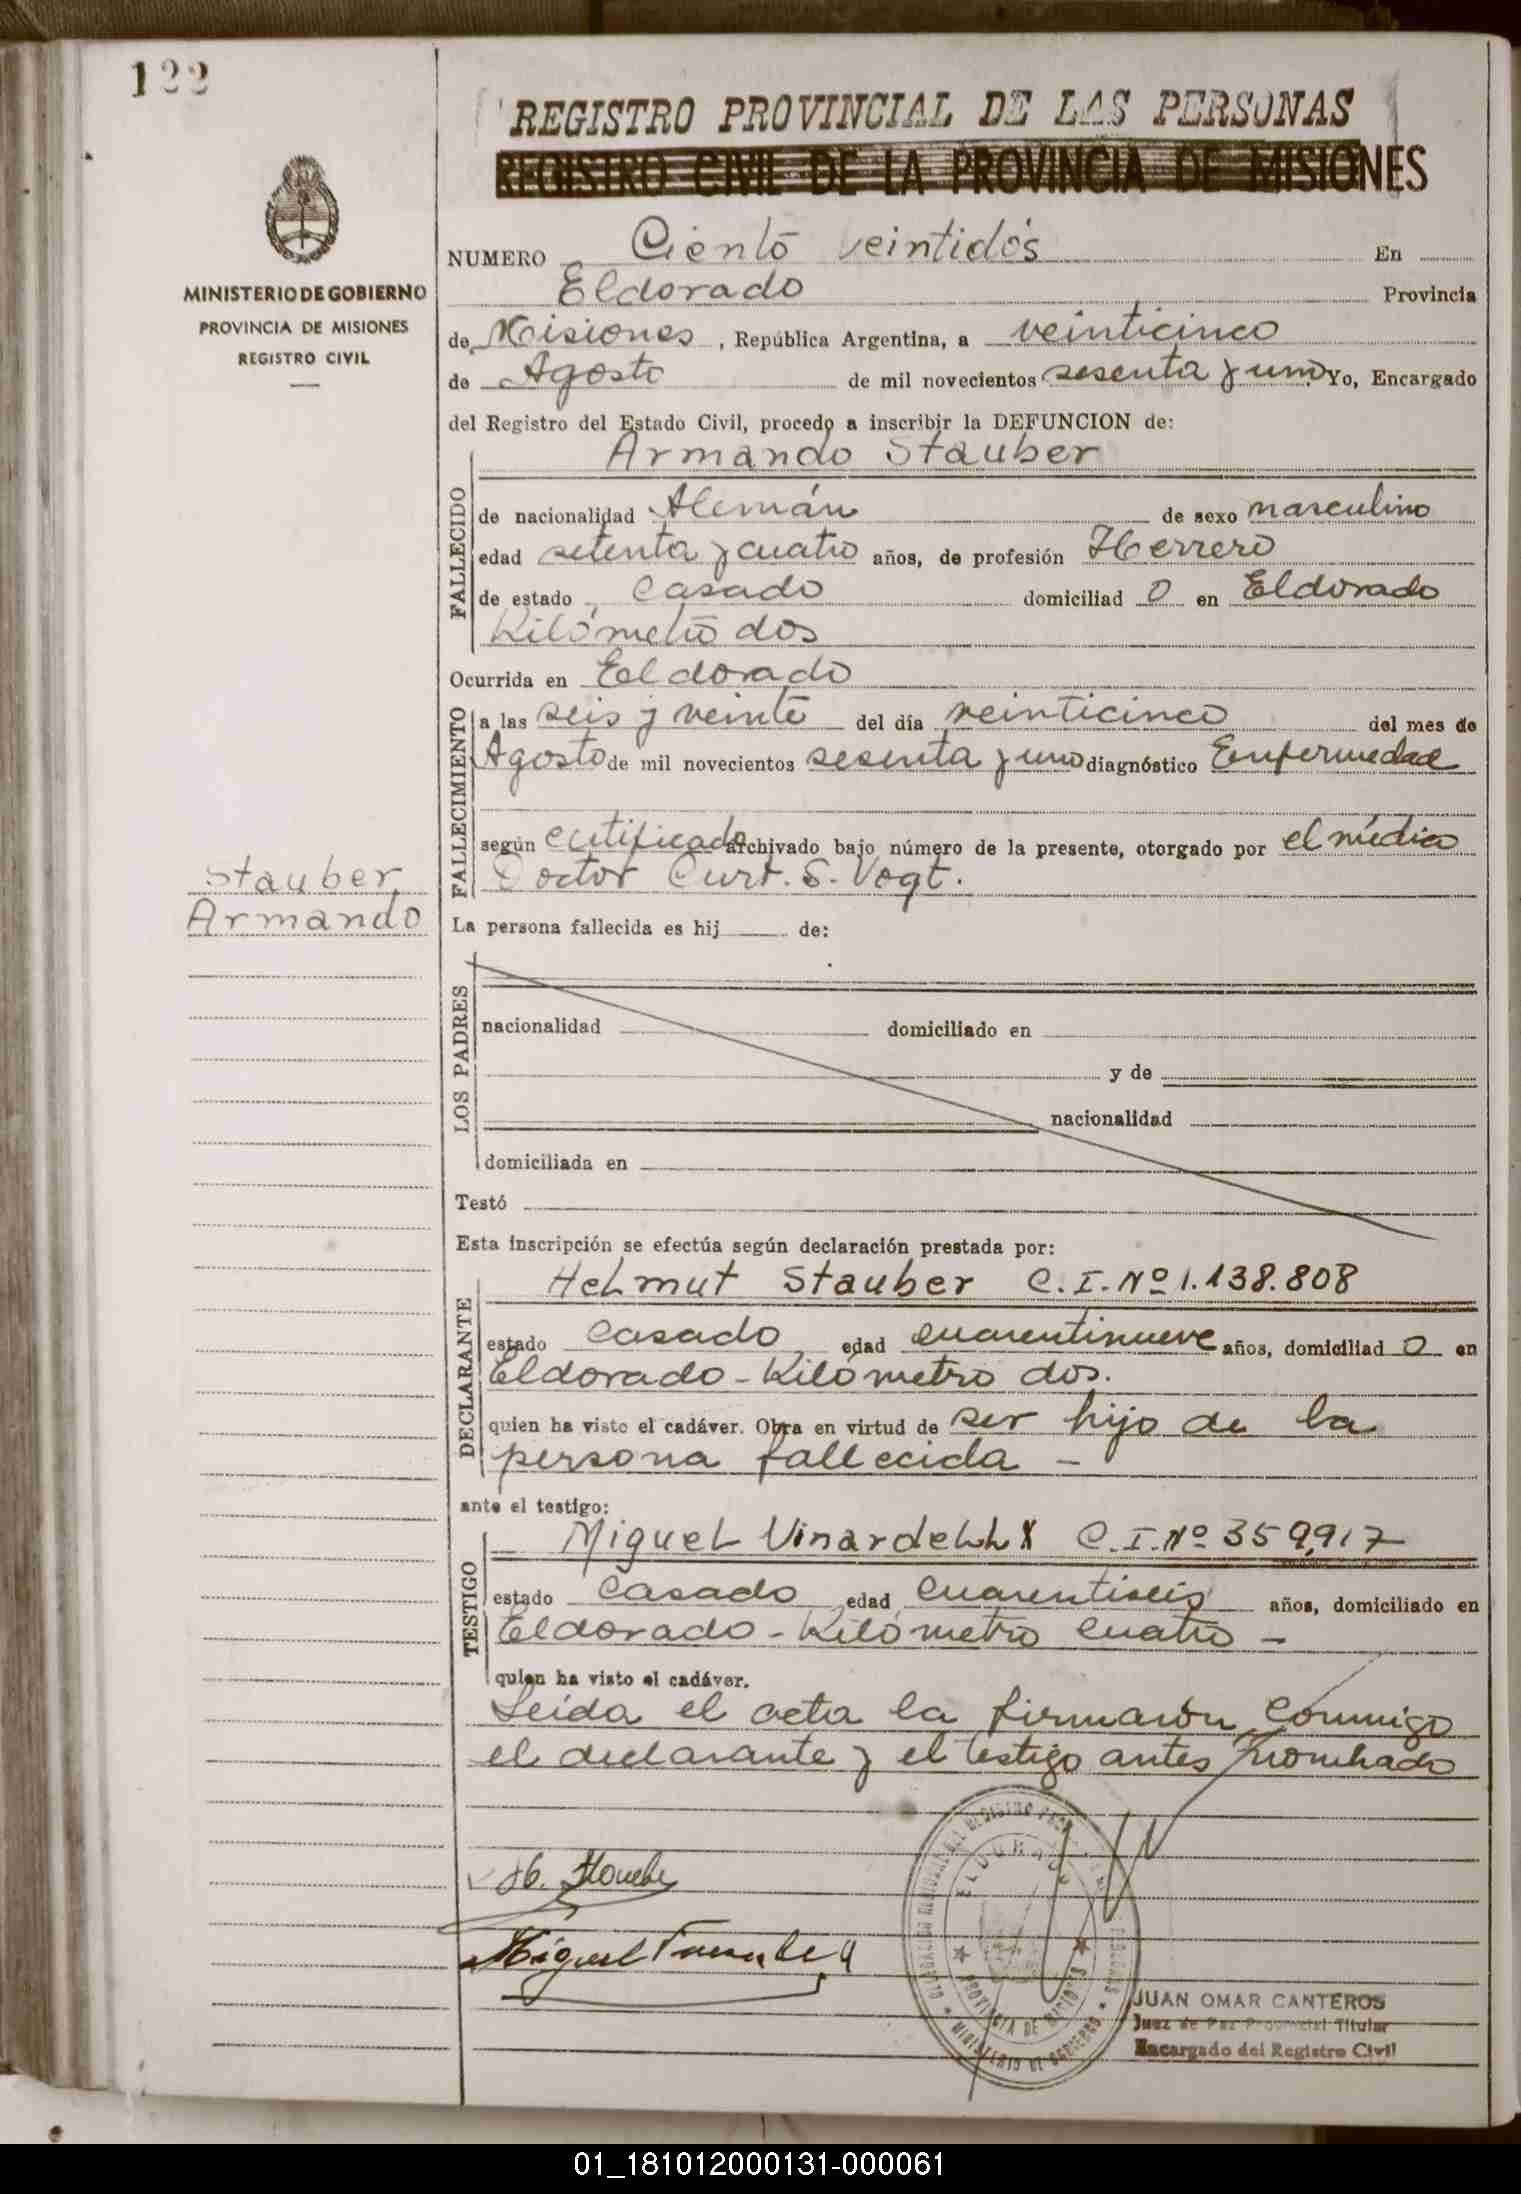 122
REGISTRO PROVINCIAL DE LAS PERSONAS
REGISTRO CIVIL DE LA PROVINCIA DE MISIONES
MINISTERIO DE GOBIERNO
PROVINCIA DE MISIONES
REGISTRO CIVIL
NUMERO Ciento veintidós En
Eldorado Provincia
de Misiones, República Argentina, a veinticinco
de Agosto de mil novecientos sesenta y uno Yo, Encargado
del Registro del Estado Civil, procedo a inscribir la DEFUNCION de:
Armando Stauber
FALLECIDO
de nacionalidad Alemán de sexo masculino
edad setenta y cuatro años, de profesión Herrero
de estado Casado domiciliad o en Eldorado
Kilómetro dos
Ocurrida en Eldorado
FALLECIMIENTO
a las seis y veinte del día veinticinco del mes de
Agosto de mil novecientos sesenta y uno diagnóstico Enfermedad
según certificado archivado bajo número de la presente, otorgado por el médico
Doctor Curt. S. Vogt.
Stauber
Armando
La persona fallecida es hij de:
LOS PADRES
nacionalidad domiciliado en
y de
nacionalidad
domiciliada en
Testó
Esta inscripción se efectúa según declaración prestada por:
Helmut Stauber C.I.Nº 1.138.808
DECLARANTE
estado Casado edad cuarentinueve años, domiciliad o en
Eldorado - Kilómetro dos.
quien ha visto el cadáver. Obra en virtud de ser hijo de la
persona fallecida -
ante el testigo:
Miguel Vinardell C.I.Nº 359.917
TESTIGO
estado Casado edad cuarentiseis años, domiciliado en
Eldorado - Kilómetro cuatro -
quien ha visto el cadáver.
Leída el acta la firmaron conmigo
el declarante y el testigo antes nombrado
ELDORADO
PROVINCIA DE MISIONES
MINISTERIO DE GOBIERNO
H.
Miguel
JUAN OMAR CANTEROS
Juez de Paz Provincial Titular
Encargado del Registro Civil
01_181012000131-000061